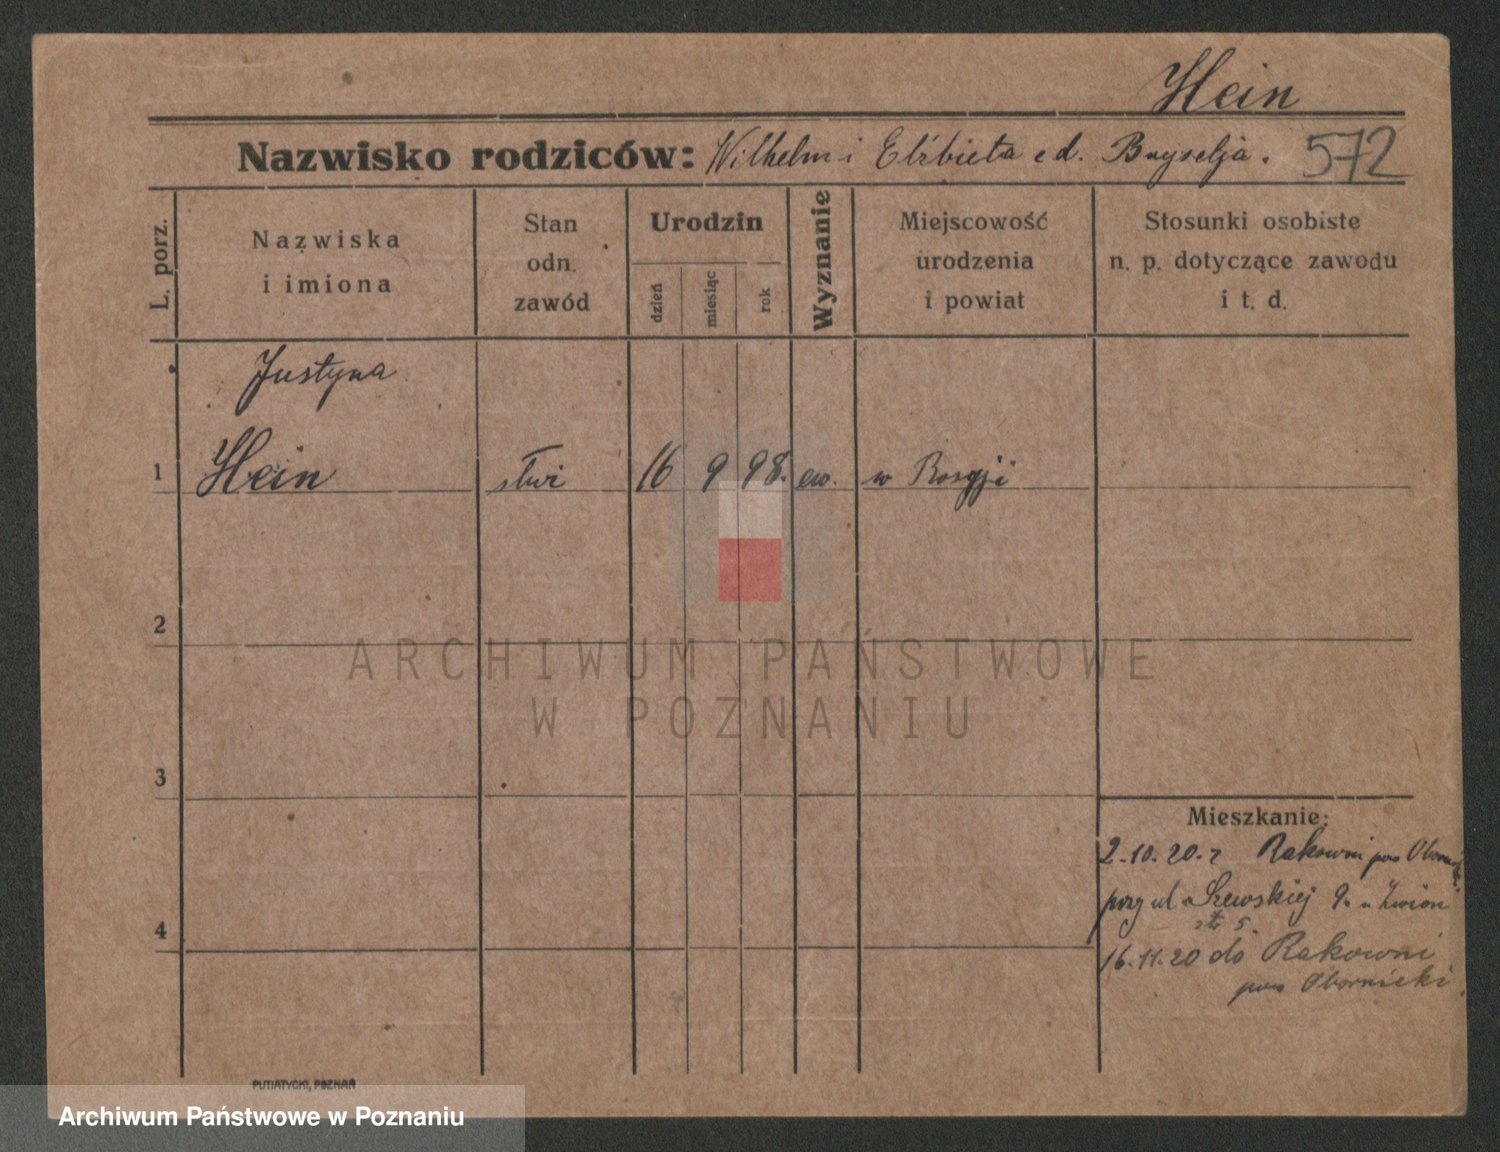 Hein
Nazwisko rodziców: Wilhelm i Elżbieta Bayselja. 572
L. porz.
Nazwiska
i imiona
Stan
odn.
zawód
Urodzin
dzień
miesiąc
rok
Wyznanie
Miejscowość
urodzenia
i powiat
Stosunki osobiste
n. p. dotyczące zawodu
i t. d.
Justyna
1 Hein 16 9 98. ew. w Rosyji
2
3
4
Mieszkanie:
2.10.20. z Rakowni pow
przy ul. Szewskiej 9.
16.11.20 do Rakowni
pow Obornicki
ARCHIWUM PAŃSTWOWE
W POZNANIU
PUTIATYCKI, POZNAŃ
Archiwum Państwowe w Poznaniu